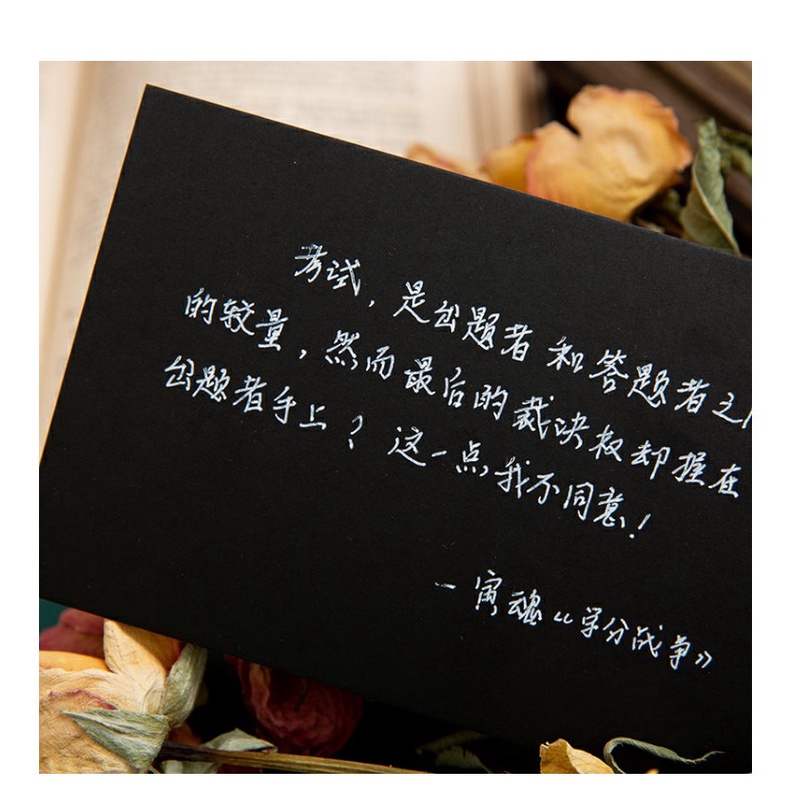 考试，是出题者和答题者之
的较量，然而最后的裁决权却握在
出题者手上？这一点，我不同意！
—寅魂《学分战争》